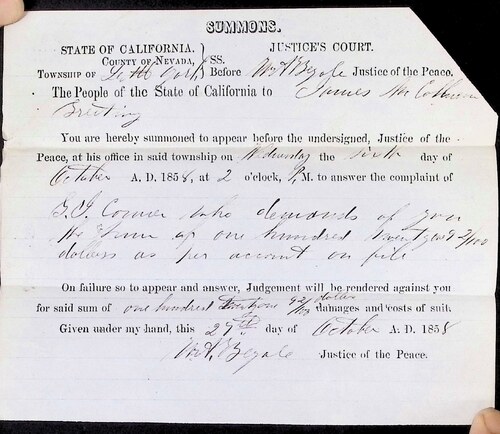 SUMMONS.
STATE OF CALIFORNIA. } SS. JUSTICE'S COURT.
COUNTY OF NEVADA,
TOWNSHIP OF Before Justice of the Peace.
The People of the State of California to James
Greeting
You are hereby summoned to appear before the undersigned, Justice of the
Peace, at his office in said township on Wednesday the day of
October A. D. 1858, at 2 o'clock, P.M. to answer the complaint of
Conner who demands of you
the sum of one hundred 92/100
dollars as per account on file
On failure so to appear and answer, Judgement will be rendered against you
for said sum of one hundred 92/100 dollars damages and costs of suit.
Given under my hand, this 27th day of October A. D. 1858
Justice of the Peace.